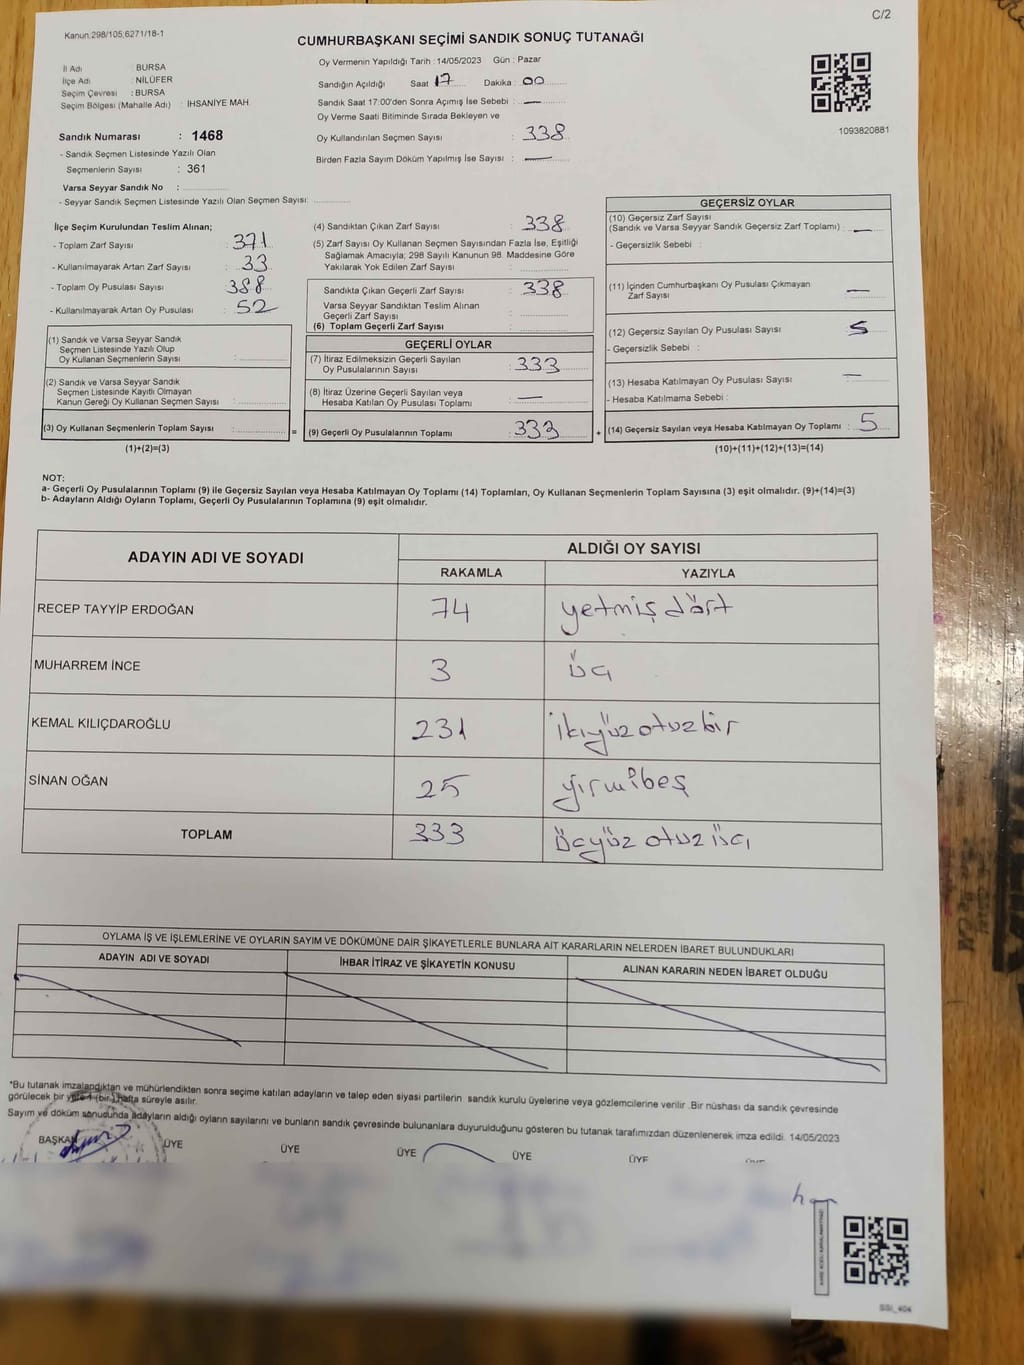 C/2
Kanun.298/105,6271/18-1
CUMHURBAŞKANI SEÇİMİ SANDIK SONUÇ TUTANAĞI
İl Adı : BURSA
İlçe Adı : NİLÜFER
Seçim Çevresi : BURSA
Seçim Bölgesi (Mahalle Adı) : İHSANİYE MAH.
Sandık Numarası : 1468
- Sandık Seçmen Listesinde Yazılı Olan
Seçmenlerin Sayısı : 361
Varsa Seyyar Sandık No :
- Seyyar Sandık Seçmen Listesinde Yazılı Olan Seçmen Sayısı:
Oy Vermenin Yapıldığı Tarih : 14/05/2023 Gün : Pazar
Sandığın Açıldığı Saat 17 Dakika : 00
Sandık Saat 17:00'den Sonra Açımış İse Sebebi : —
Oy Verme Saati Bitiminde Sırada Bekleyen ve
Oy Kullandırılan Seçmen Sayısı : 338
Birden Fazla Sayım Döküm Yapılmış İse Sayısı : —
1093820881
İlçe Seçim Kurulundan Teslim Alınan;
- Toplam Zarf Sayısı : 371
- Kullanılmayarak Artan Zarf Sayısı : 33
- Toplam Oy Pusulası Sayısı : 388
- Kullanılmayarak Artan Oy Pusulası : 52
(1) Sandık ve Varsa Seyyar Sandık
Seçmen Listesinde Yazılı Olup
Oy Kullanan Seçmenlerin Sayısı :
(2) Sandık ve Varsa Seyyar Sandık
Seçmen Listesinde Kayıtlı Olmayan
Kanun Gereği Oy Kullanan Seçmen Sayısı :
(3) Oy Kullanan Seçmenlerin Toplam Sayısı : =
(1)+(2)=(3)
(4) Sandıktan Çıkan Zarf Sayısı : 338
(5) Zarf Sayısı Oy Kullanan Seçmen Sayısından Fazla İse, Eşitliği
Sağlamak Amacıyla; 298 Sayılı Kanunun 98. Maddesine Göre
Yakılarak Yok Edilen Zarf Sayısı :
Sandıkta Çıkan Geçerli Zarf Sayısı : 338
Varsa Seyyar Sandıktan Teslim Alınan
Geçerli Zarf Sayısı :
(6) Toplam Geçerli Zarf Sayısı :
GEÇERLİ OYLAR
(7) İtiraz Edilmeksizin Geçerli Sayılan
Oy Pusulalarının Sayısı : 333
(8) İtiraz Üzerine Geçerli Sayılan veya
Hesaba Katılan Oy Pusulası Toplamı : —
(9) Geçerli Oy Pusulalarının Toplamı : 333 +
GEÇERSİZ OYLAR
(10) Geçersiz Zarf Sayısı
(Sandık ve Varsa Seyyar Sandık Geçersiz Zarf Toplamı) : —
- Geçersizlik Sebebi :
(11) İçinden Cumhurbaşkanı Oy Pusulası Çıkmayan
Zarf Sayısı : —
(12) Geçersiz Sayılan Oy Pusulası Sayısı : 5
- Geçersizlik Sebebi :
(13) Hesaba Katılmayan Oy Pusulası Sayısı : —
- Hesaba Katılmama Sebebi :
(14) Geçersiz Sayılan veya Hesaba Katılmayan Oy Toplamı : 5
(10)+(11)+(12)+(13)=(14)
NOT:
a- Geçerli Oy Pusulalarının Toplamı (9) ile Geçersiz Sayılan veya Hesaba Katılmayan Oy Toplamı (14) Toplamları, Oy Kullanan Seçmenlerin Toplam Sayısına (3) eşit olmalıdır. (9)+(14)=(3)
b- Adayların Aldığı Oyların Toplamı, Geçerli Oy Pusulalarının Toplamına (9) eşit olmalıdır.
ADAYIN ADI VE SOYADI
ALDIĞI OY SAYISI
RAKAMLA YAZIYLA
RECEP TAYYİP ERDOĞAN 74 yetmiş dört
MUHARREM İNCE 3 üç
KEMAL KILIÇDAROĞLU 231 ikiyüz otuz bir
SİNAN OĞAN 25 yirmibeş
TOPLAM 333 üçyüz otuz üç
OYLAMA İŞ VE İŞLEMLERİNE VE OYLARIN SAYIM VE DÖKÜMÜNE DAİR ŞİKAYETLERLE BUNLARA AİT KARARLARIN NELERDEN İBARET BULUNDUKLARI
ADAYIN ADI VE SOYADI İHBAR İTİRAZ VE ŞİKAYETİN KONUSU ALINAN KARARIN NEDEN İBARET OLDUĞU
*Bu tutanak imzalandıktan ve mühürlendikten sonra seçime katılan adayların ve talep eden siyasi partilerin sandık kurulu üyelerine veya gözlemcilerine verilir .Bir nüshası da sandık çevresinde
görülecek bir yere 1 (bir) hafta süreyle asılır.
Sayım ve döküm sonucunda adayların aldığı oyların sayılarını ve bunların sandık çevresinde bulunanlara duyurulduğunu gösteren bu tutanak tarafımızdan düzenlenerek imza edildi. 14/05/2023
BAŞKAN ÜYE ÜYE ÜYE ÜYE ÜYE ÜYE